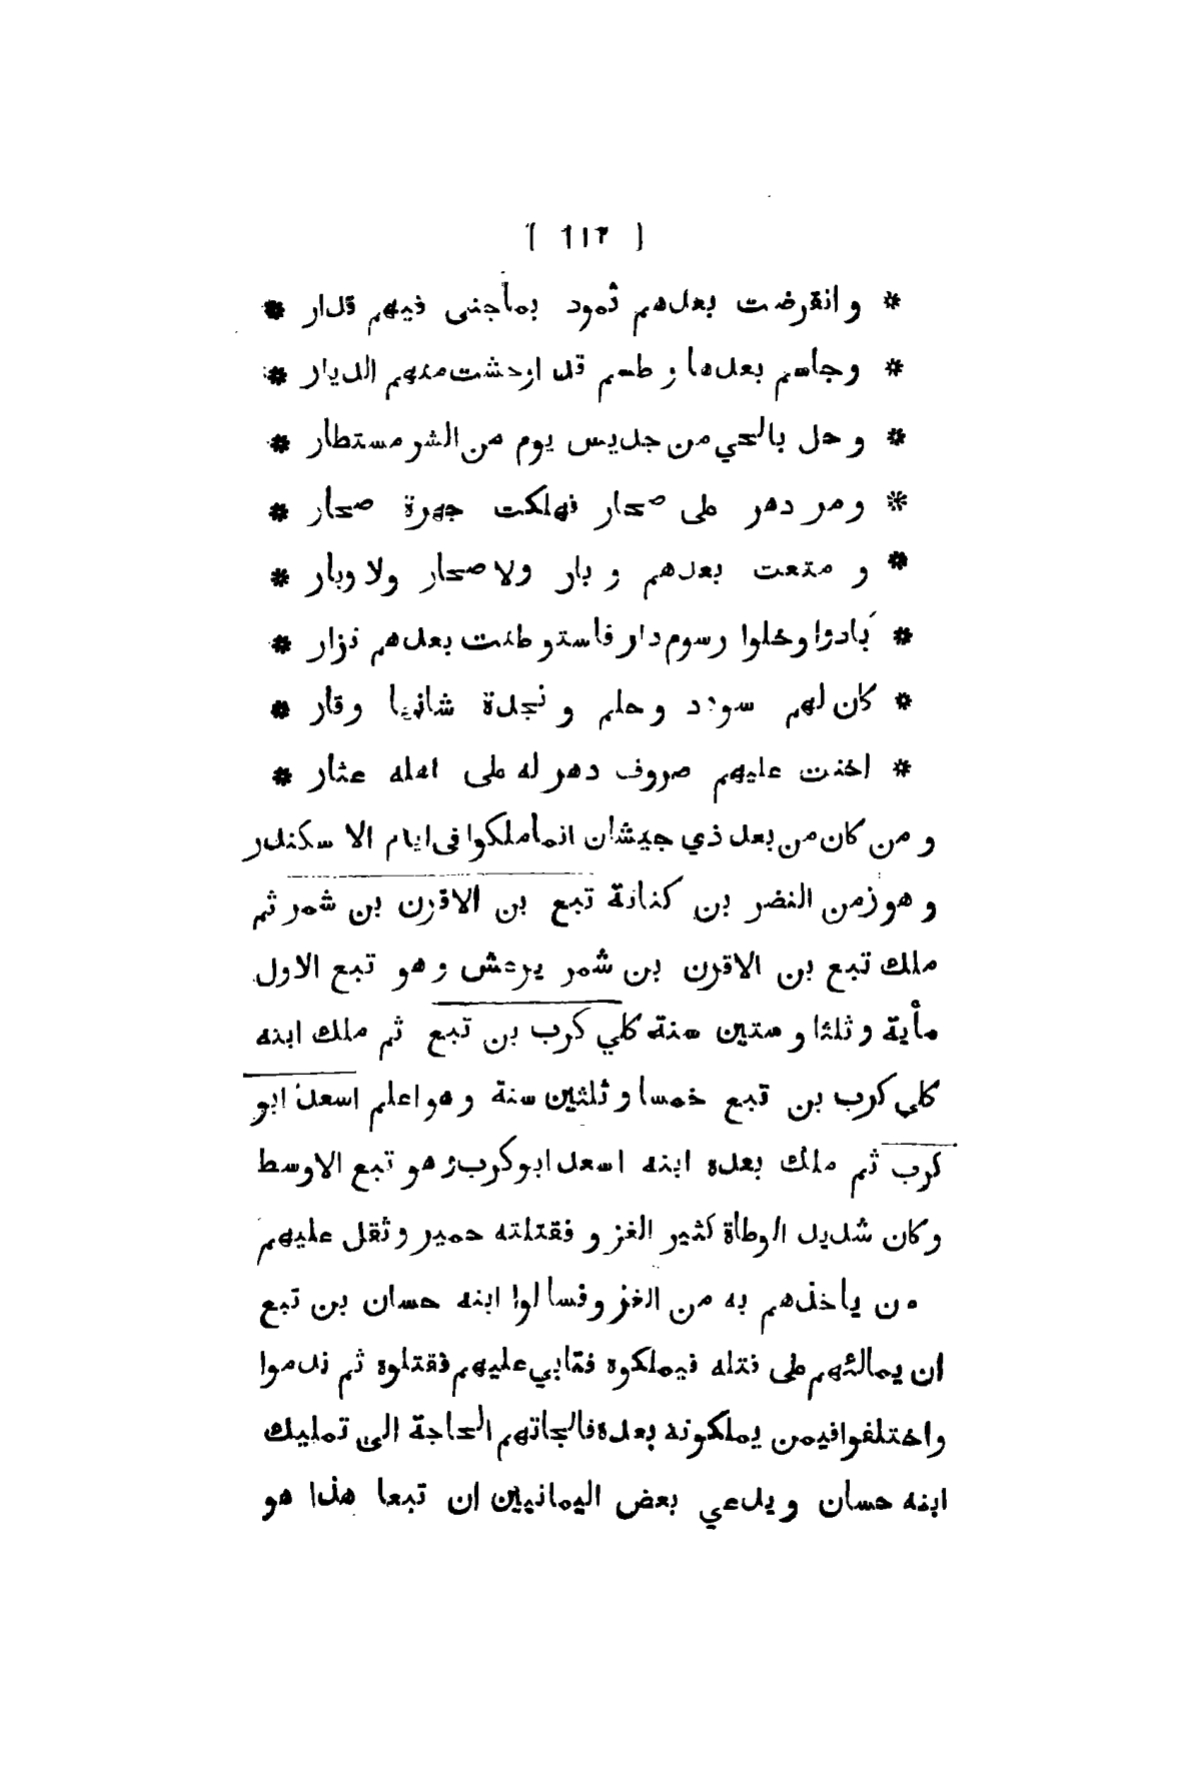 [ ١١٢ ]
* و انقرضت بعدهم ثمود بمأجنى فيهم قدار *
* وجاسم بعدها و طسم قد اوحشت منهم الديار *
* و حل بالحي من جديس يوم من الشر مستطار *
* ومر دهر على صحار فهلكت جهرة صحار *
* و متعت بعدهم و بار ولا صحار ولا وبار *
* بادوا وخلوا رسوم دار فاستوطنت بعدهم نزار *
* كان لهم سودد و حلم و نجدة شانها وقار *
* اخنت عليهم صروف دهر له على اهله عثار *
و من كان من بعد ذي جيشان انمأملكوا فى ايام الا سكندر
و هو زمن النضر بن كنانة تبع بن الاقرن بن شمر ثم
ملك تبع بن الاقرن بن شمر يرعش و هو تبع الاول
مأية و ثلثا و ستين سنة كلي كرب بن تبع ثم ملك ابنه
كلي كرب بن تبع خمسا و ثلثين سنة و هو اعلم اسعد ابو
كرب ثم ملك بعده ابنه اسعد ابو كرب و هو تبع الاوسط
وكان شديد الوطاة كثير الغز و فقتلته حمير و ثقل عليهم
من ياخذهم به من الغز و فسالوا ابنه حسان بن تبع
ان يمالئهم على قتله فيملكوه فتابي عليهم فقتلوه ثم ندموا
واختلفوا فيمن يملكونه بعده فالجاتهم الحاجة الى تمليك
ابنه حسان و يدعي بعض اليمانيين ان تبعا هذا هو